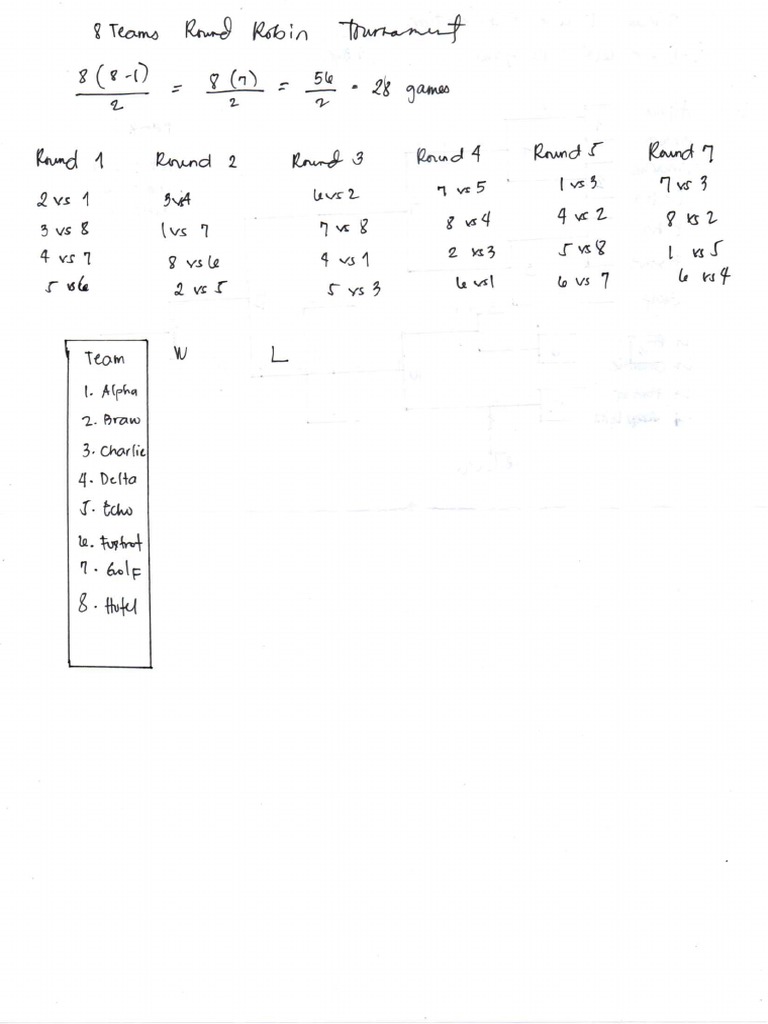 8 Teams Round Robin Tournament
8(8-1)/2 = 8(7)/2 = 56/2 = 28 games
Round 1 Round 2 Round 3 Round 4 Round 5 Round 7
2 vs 1 3 vs 4 6 vs 2 7 vs 5 1 vs 3 7 vs 3
3 vs 8 1 vs 7 7 vs 8 8 vs 4 4 vs 2 8 vs 2
4 vs 7 8 vs 6 4 vs 1 2 vs 3 5 vs 8 1 vs 5
5 vs 6 2 vs 5 5 vs 3 6 vs 1 6 vs 7 6 vs 4
Team W L
1. Alpha
2. Braw
3. Charlie
4. Delta
5. Echo
6. Foxtrot
7. Golf
8. Hotel